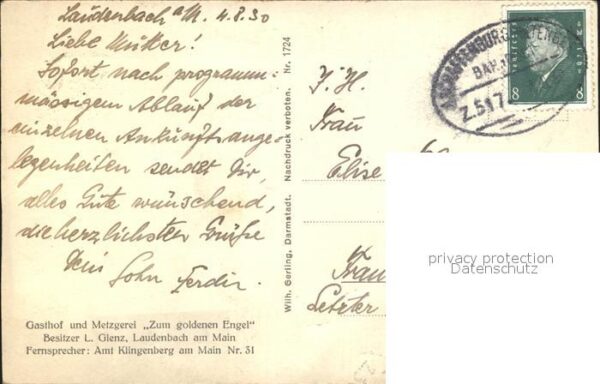 Laudenbach a/M. 4.8.30
Liebe Mutter!
Sofort nach programm-
mässigem Ablauf der
einzelnen Ankunftsange-
legenheiten sendet Dir,
alles Gute wünschend,
die herzlichsten Grüße
Dein Sohn Ferdin.
Gasthof und Metzgerei „Zum goldenen Engel"
Besitzer L. Glenz, Laudenbach am Main
Fernsprecher: Amt Klingenberg am Main Nr. 31
Wilh. Gerling, Darmstadt. Nachdruck verboten. Nr. 1724
Frau
Elise
Frau
Letzter
BAHN
Z.517
8 8
privacy protection
Datenschutz